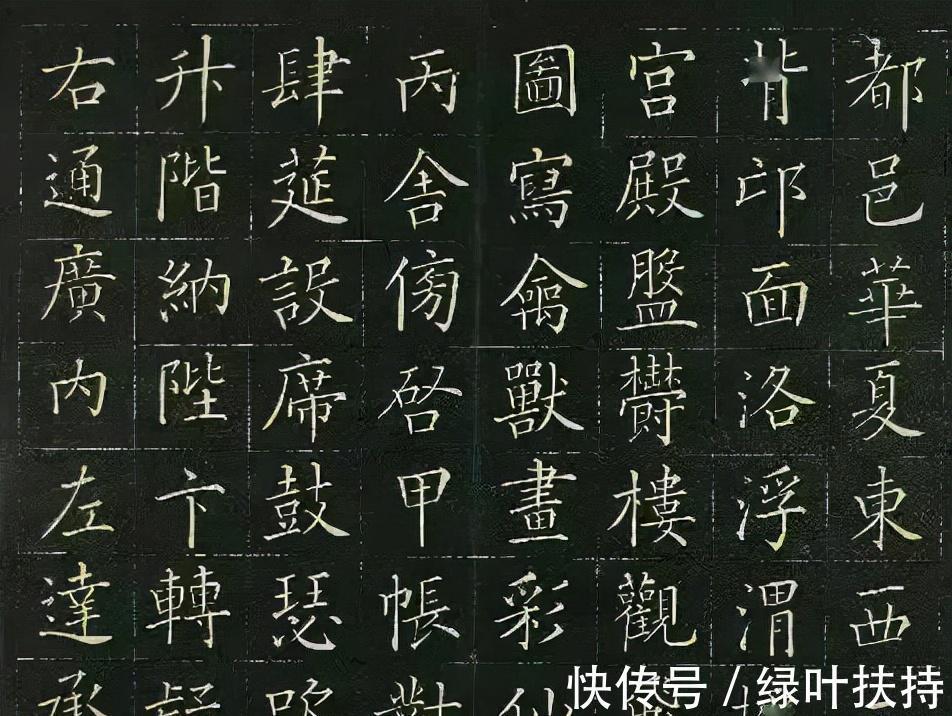 都邑華夏東西
背邙面洛浮渭
宫殿盤欝樓觀
圖寫禽獸畫彩仙
丙舍傍啓甲帳對
肆莚設席鼓瑟吹
升階納陛卞轉疑
右通廣内左達承
快传号/绿叶扶持